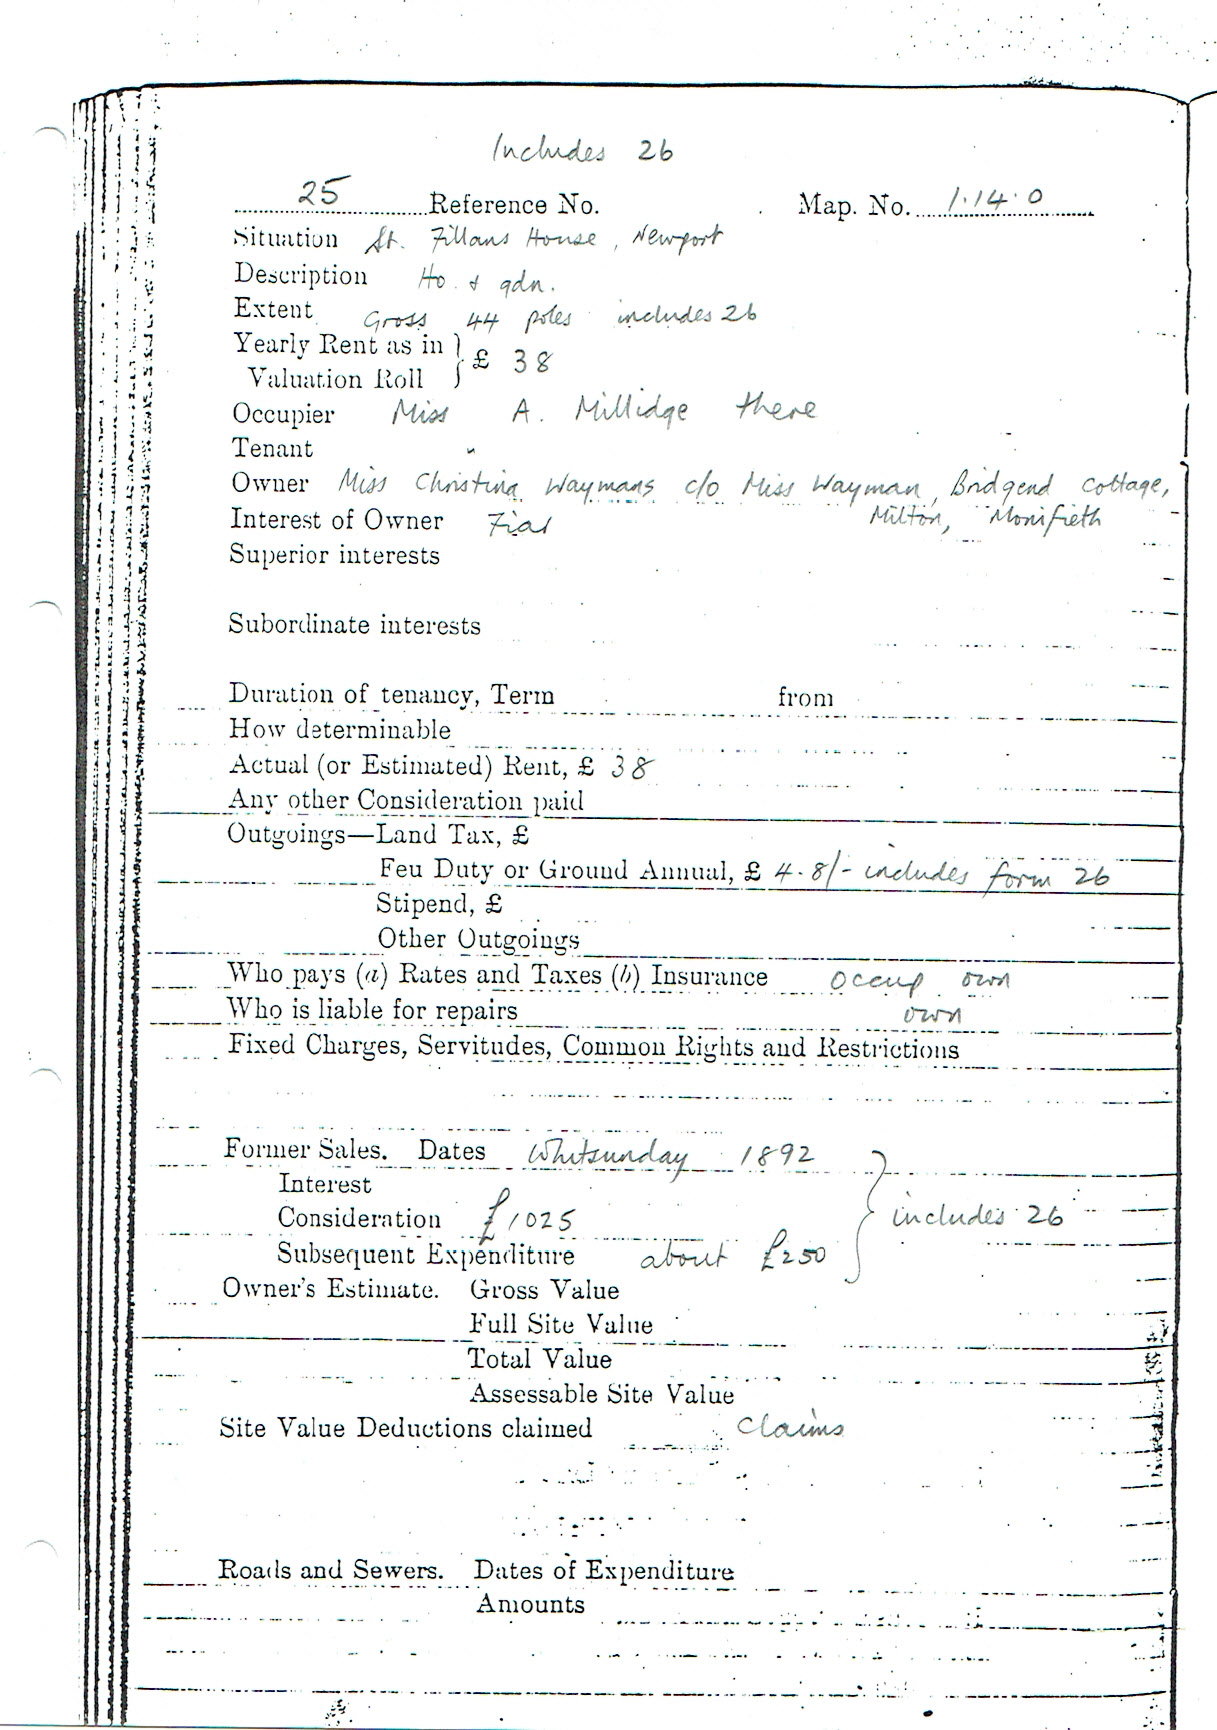 Includes 26
25 Reference No. Map. No. 1.14.0
Situation St. Fillans House, Newport
Description Ho. & gdn.
Extent Gross 44 poles includes 26
Yearly Rent as in
Valuation Roll } £ 38
Occupier Miss A. Millidge there
Tenant "
Owner Miss Christina Waymans c/o Miss Wayman, Bridgend Cottage,
Interest of Owner Fiar Milton, Monifieth
Superior interests
Subordinate interests
Duration of tenancy, Term from
How determinable
Actual (or Estimated) Rent, £ 38
Any other Consideration paid
Outgoings—Land Tax, £
Feu Duty or Ground Annual, £ 4.8/- includes form 26
Stipend, £
Other Outgoings
Who pays (a) Rates and Taxes (b) Insurance occup own
Who is liable for repairs own
Fixed Charges, Servitudes, Common Rights and Restrictions
Former Sales. Dates Whitsunday 1892
Interest
Consideration £1025 } includes 26
Subsequent Expenditure about £250
Owner's Estimate. Gross Value
Full Site Value
Total Value
Assessable Site Value
Site Value Deductions claimed Claims
Roads and Sewers. Dates of Expenditure
Amounts